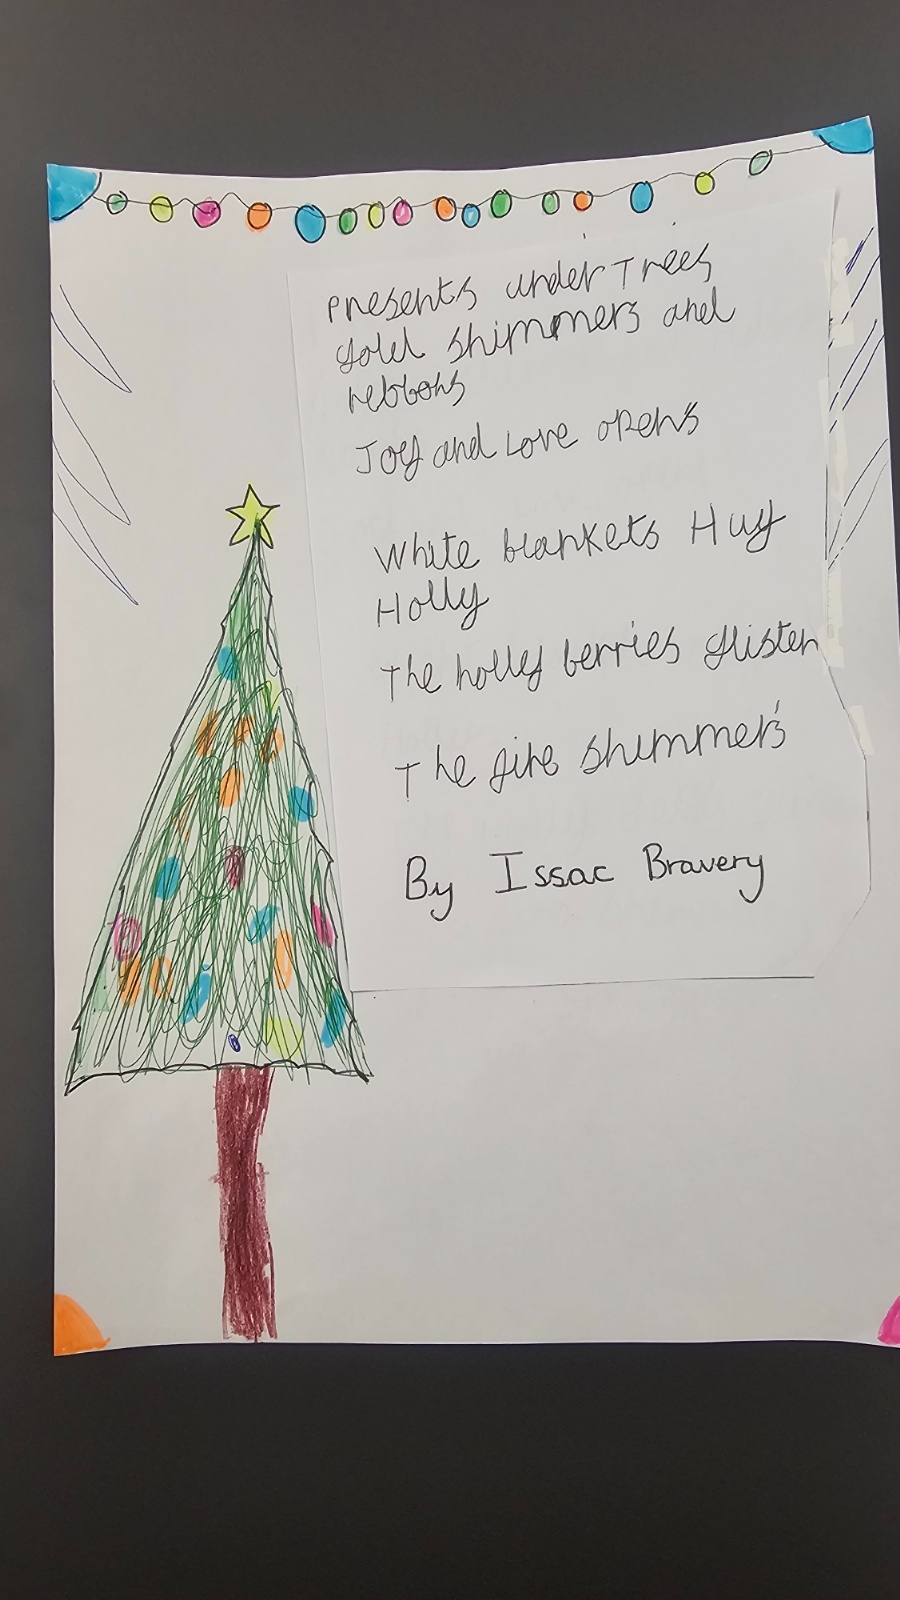 Presents under Trees
gold shimmers and
rebbons
Joy and Love opens
White blankets Hug
Holly
The holly berries glisten
The fire shimmers
By Issac Bravery